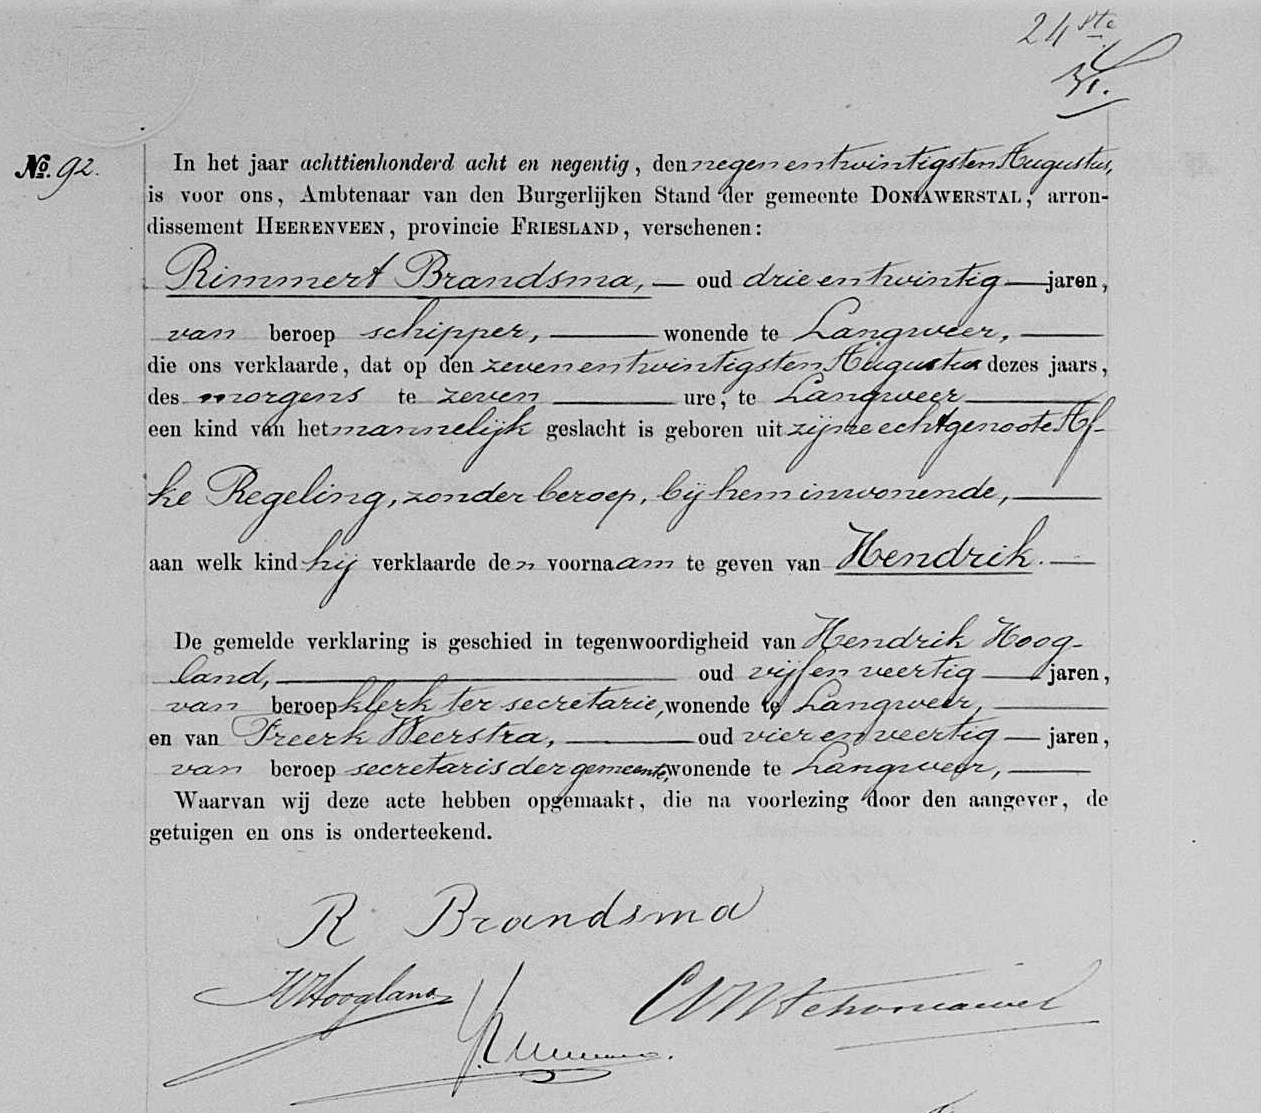 24ste
No. 92.
In het jaar achttienhonderd acht en negentig, den negen en twintigsten Augustus,
is voor ons, Ambtenaar van den Burgerlijken Stand der gemeente DONIAWERSTAL, arron-
dissement HEERENVEEN, provincie FRIESLAND, verschenen:
Rimmert Brandsma, oud drie en twintig jaren,
van beroep schipper, wonende te Langweer,
die ons verklaarde, dat op den zeven en twintigsten Augustus dezes jaars,
des morgens te zeven ure, te Langweer
een kind van het mannelijk geslacht is geboren uit zijne echtgenoote Af-
ke Regeling, zonder beroep, bij hem inwonende,
aan welk kind hij verklaarde den voornaam te geven van Hendrik.
De gemelde verklaring is geschied in tegenwoordigheid van Hendrik Hoog-
land, oud vijf en veertig jaren,
van beroep klerk ter secretarie, wonende te Langweer,
en van Freerk Weerstra, oud vier en veertig jaren,
van beroep secretaris der gemeente, wonende te Langweer,
Waarvan wij deze acte hebben opgemaakt, die na voorlezing door den aangever, de
getuigen en ons is onderteekend.
R Brandsma
H Hoogland